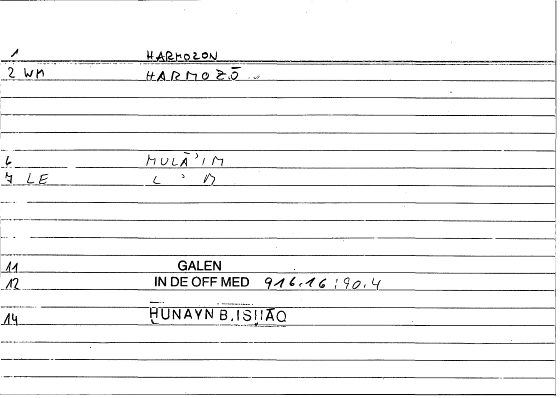 1 HARMOZON
2 WM HARMOZŌ
6 MULĀʾIM
7 LE L ʾ M
11 GALEN
12 IN DE OFF MED 916.16;90.4
14 ḤUNAYN B.ISḤĀQ